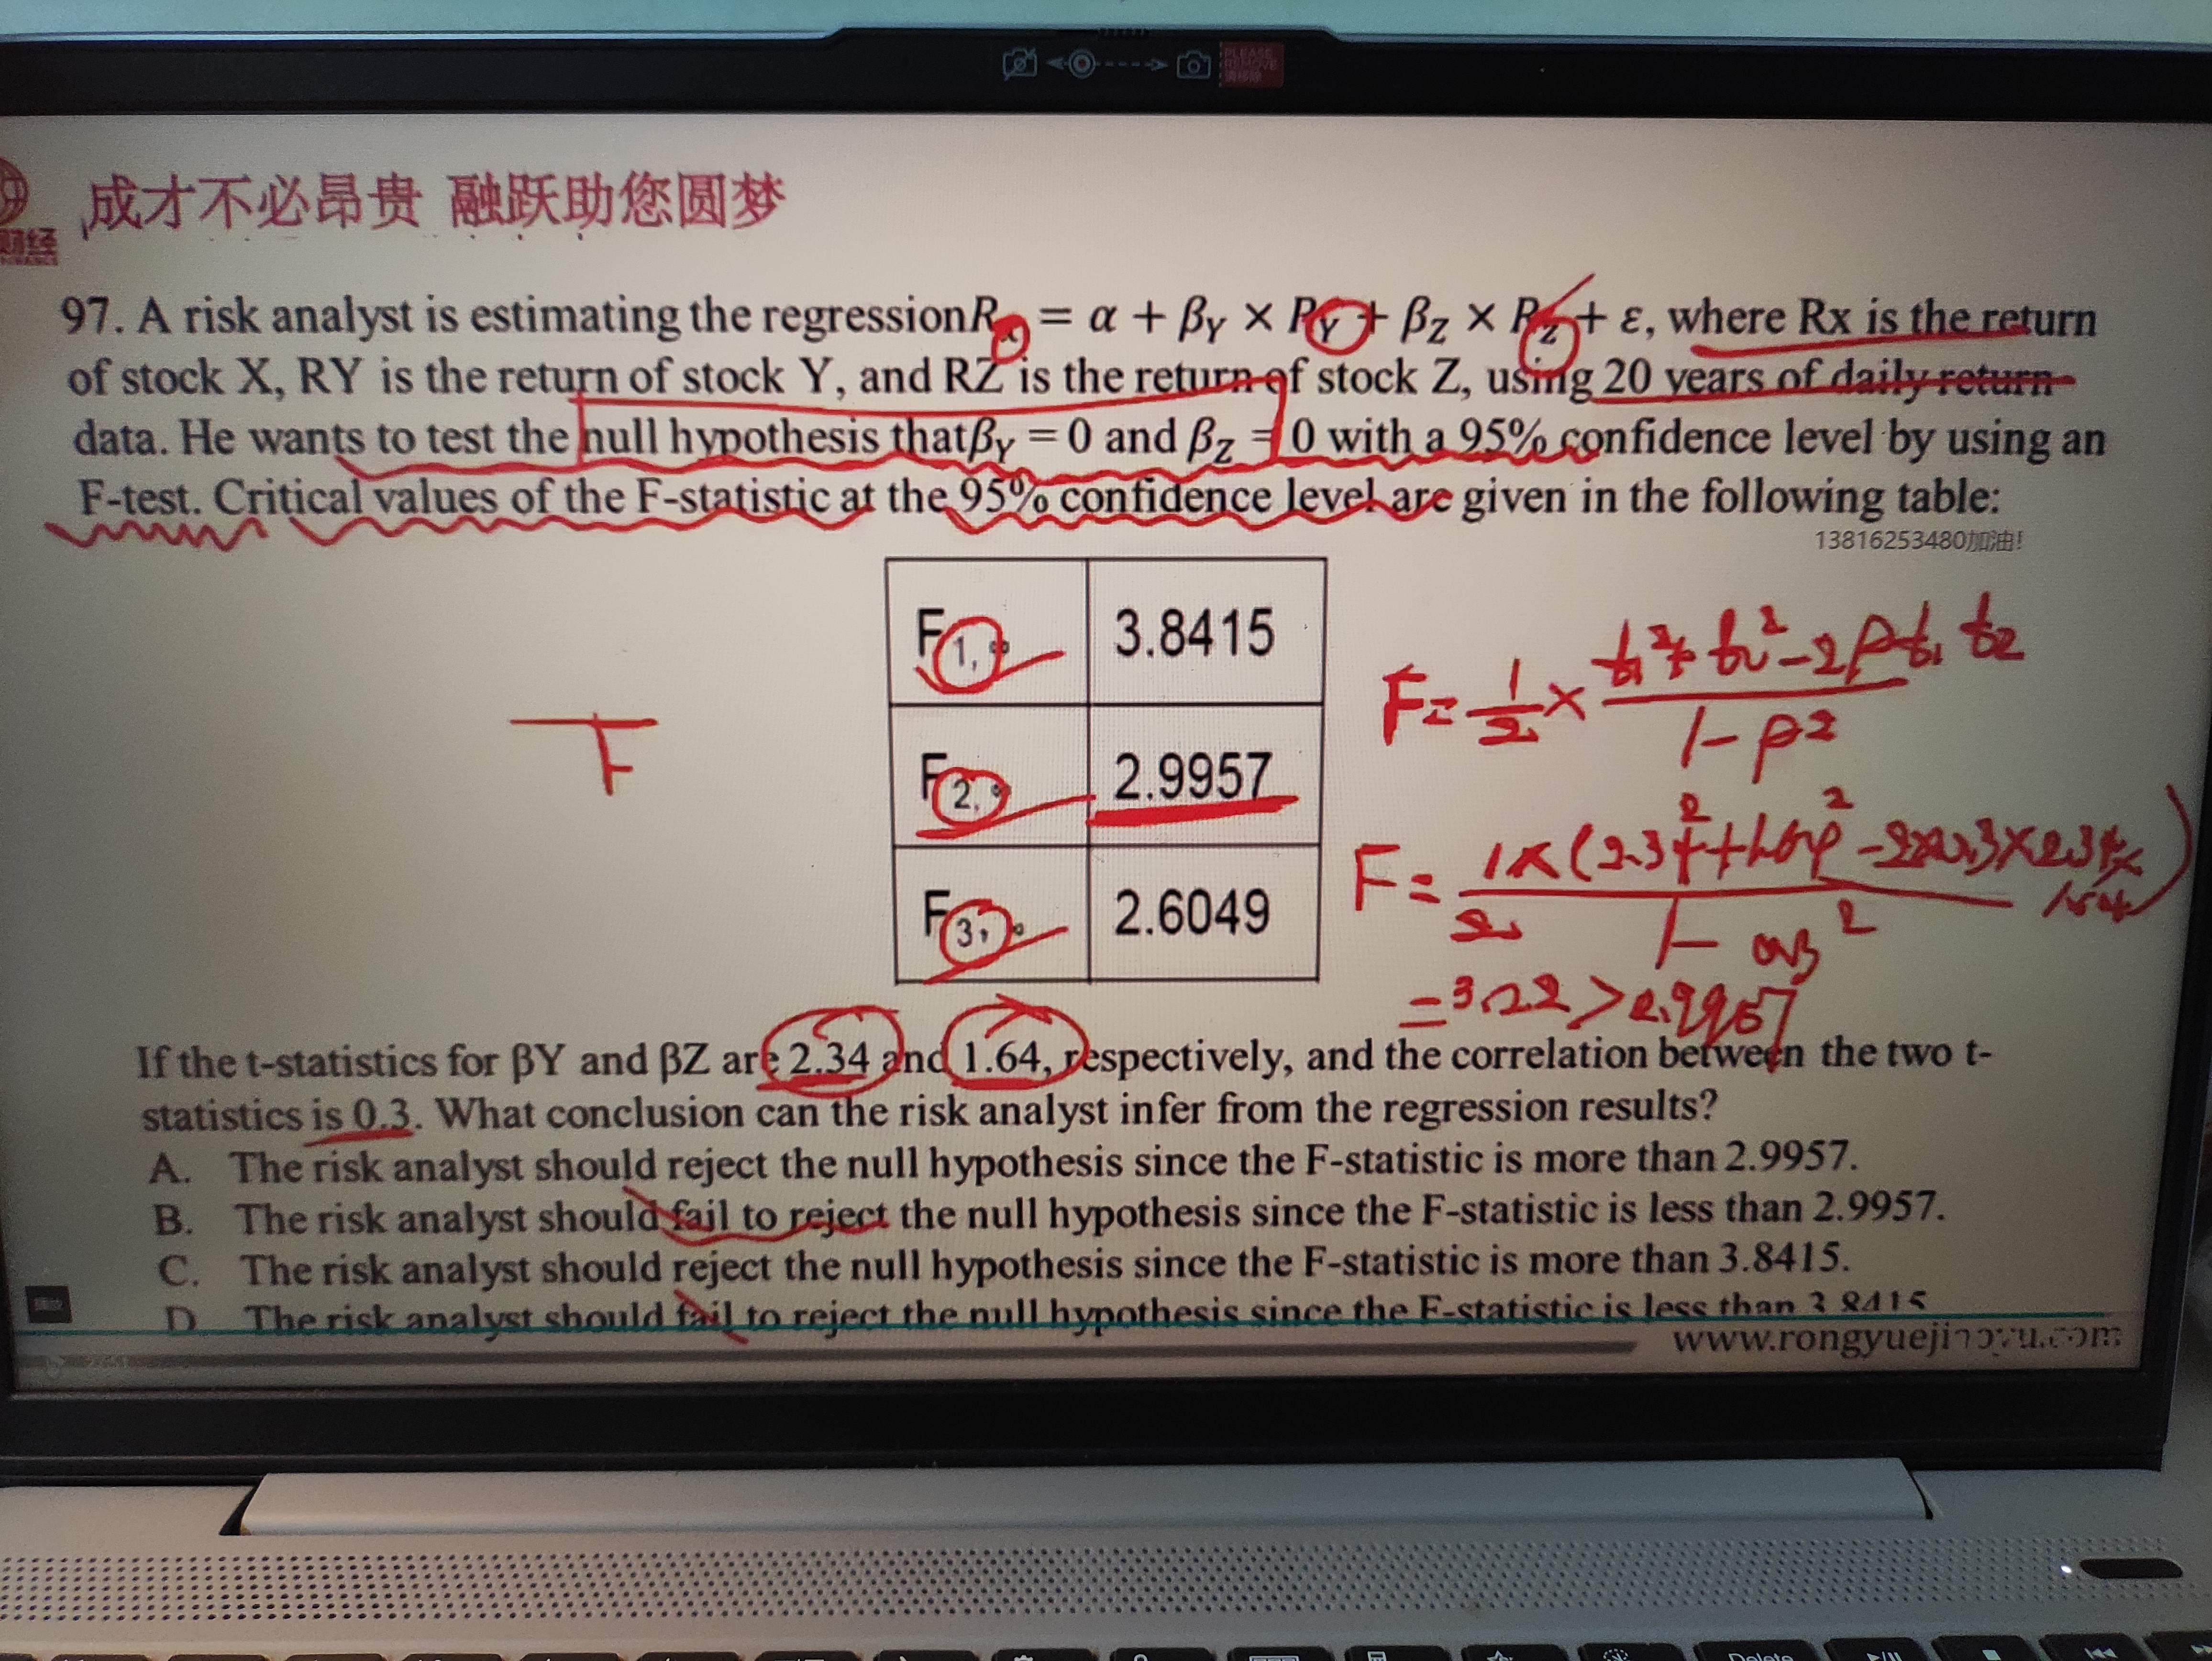 PLEASE
REMOVE
成才不必昂贵 融跃助您圆梦
财经
97. A risk analyst is estimating the regressionRx = α + βY × RY + βZ × RZ + ε, where Rx is the return
of stock X, RY is the return of stock Y, and RZ is the return of stock Z, using 20 years of daily return
data. He wants to test the null hypothesis thatβY = 0 and βZ = 0 with a 95% confidence level by using an
F-test. Critical values of the F-statistic at the 95% confidence level are given in the following table:
13816253480加油!
F1,∞ 3.8415
F2,∞ 2.9957
F3,∞ 2.6049
F
F= 1/2 × (t1² + t2² - 2ρt1 t2) / (1-ρ²)
= 3.22 > 2.9957
If the t-statistics for βY and βZ are 2.34 and 1.64, respectively, and the correlation between the two t-
statistics is 0.3. What conclusion can the risk analyst infer from the regression results?
A. The risk analyst should reject the null hypothesis since the F-statistic is more than 2.9957.
B. The risk analyst should fail to reject the null hypothesis since the F-statistic is less than 2.9957.
C. The risk analyst should reject the null hypothesis since the F-statistic is more than 3.8415.
D The risk analyst should fail to reject the null hypothesis since the F-statistic is less than 3.8415
www.rongyuejiaoyu.com
Delete